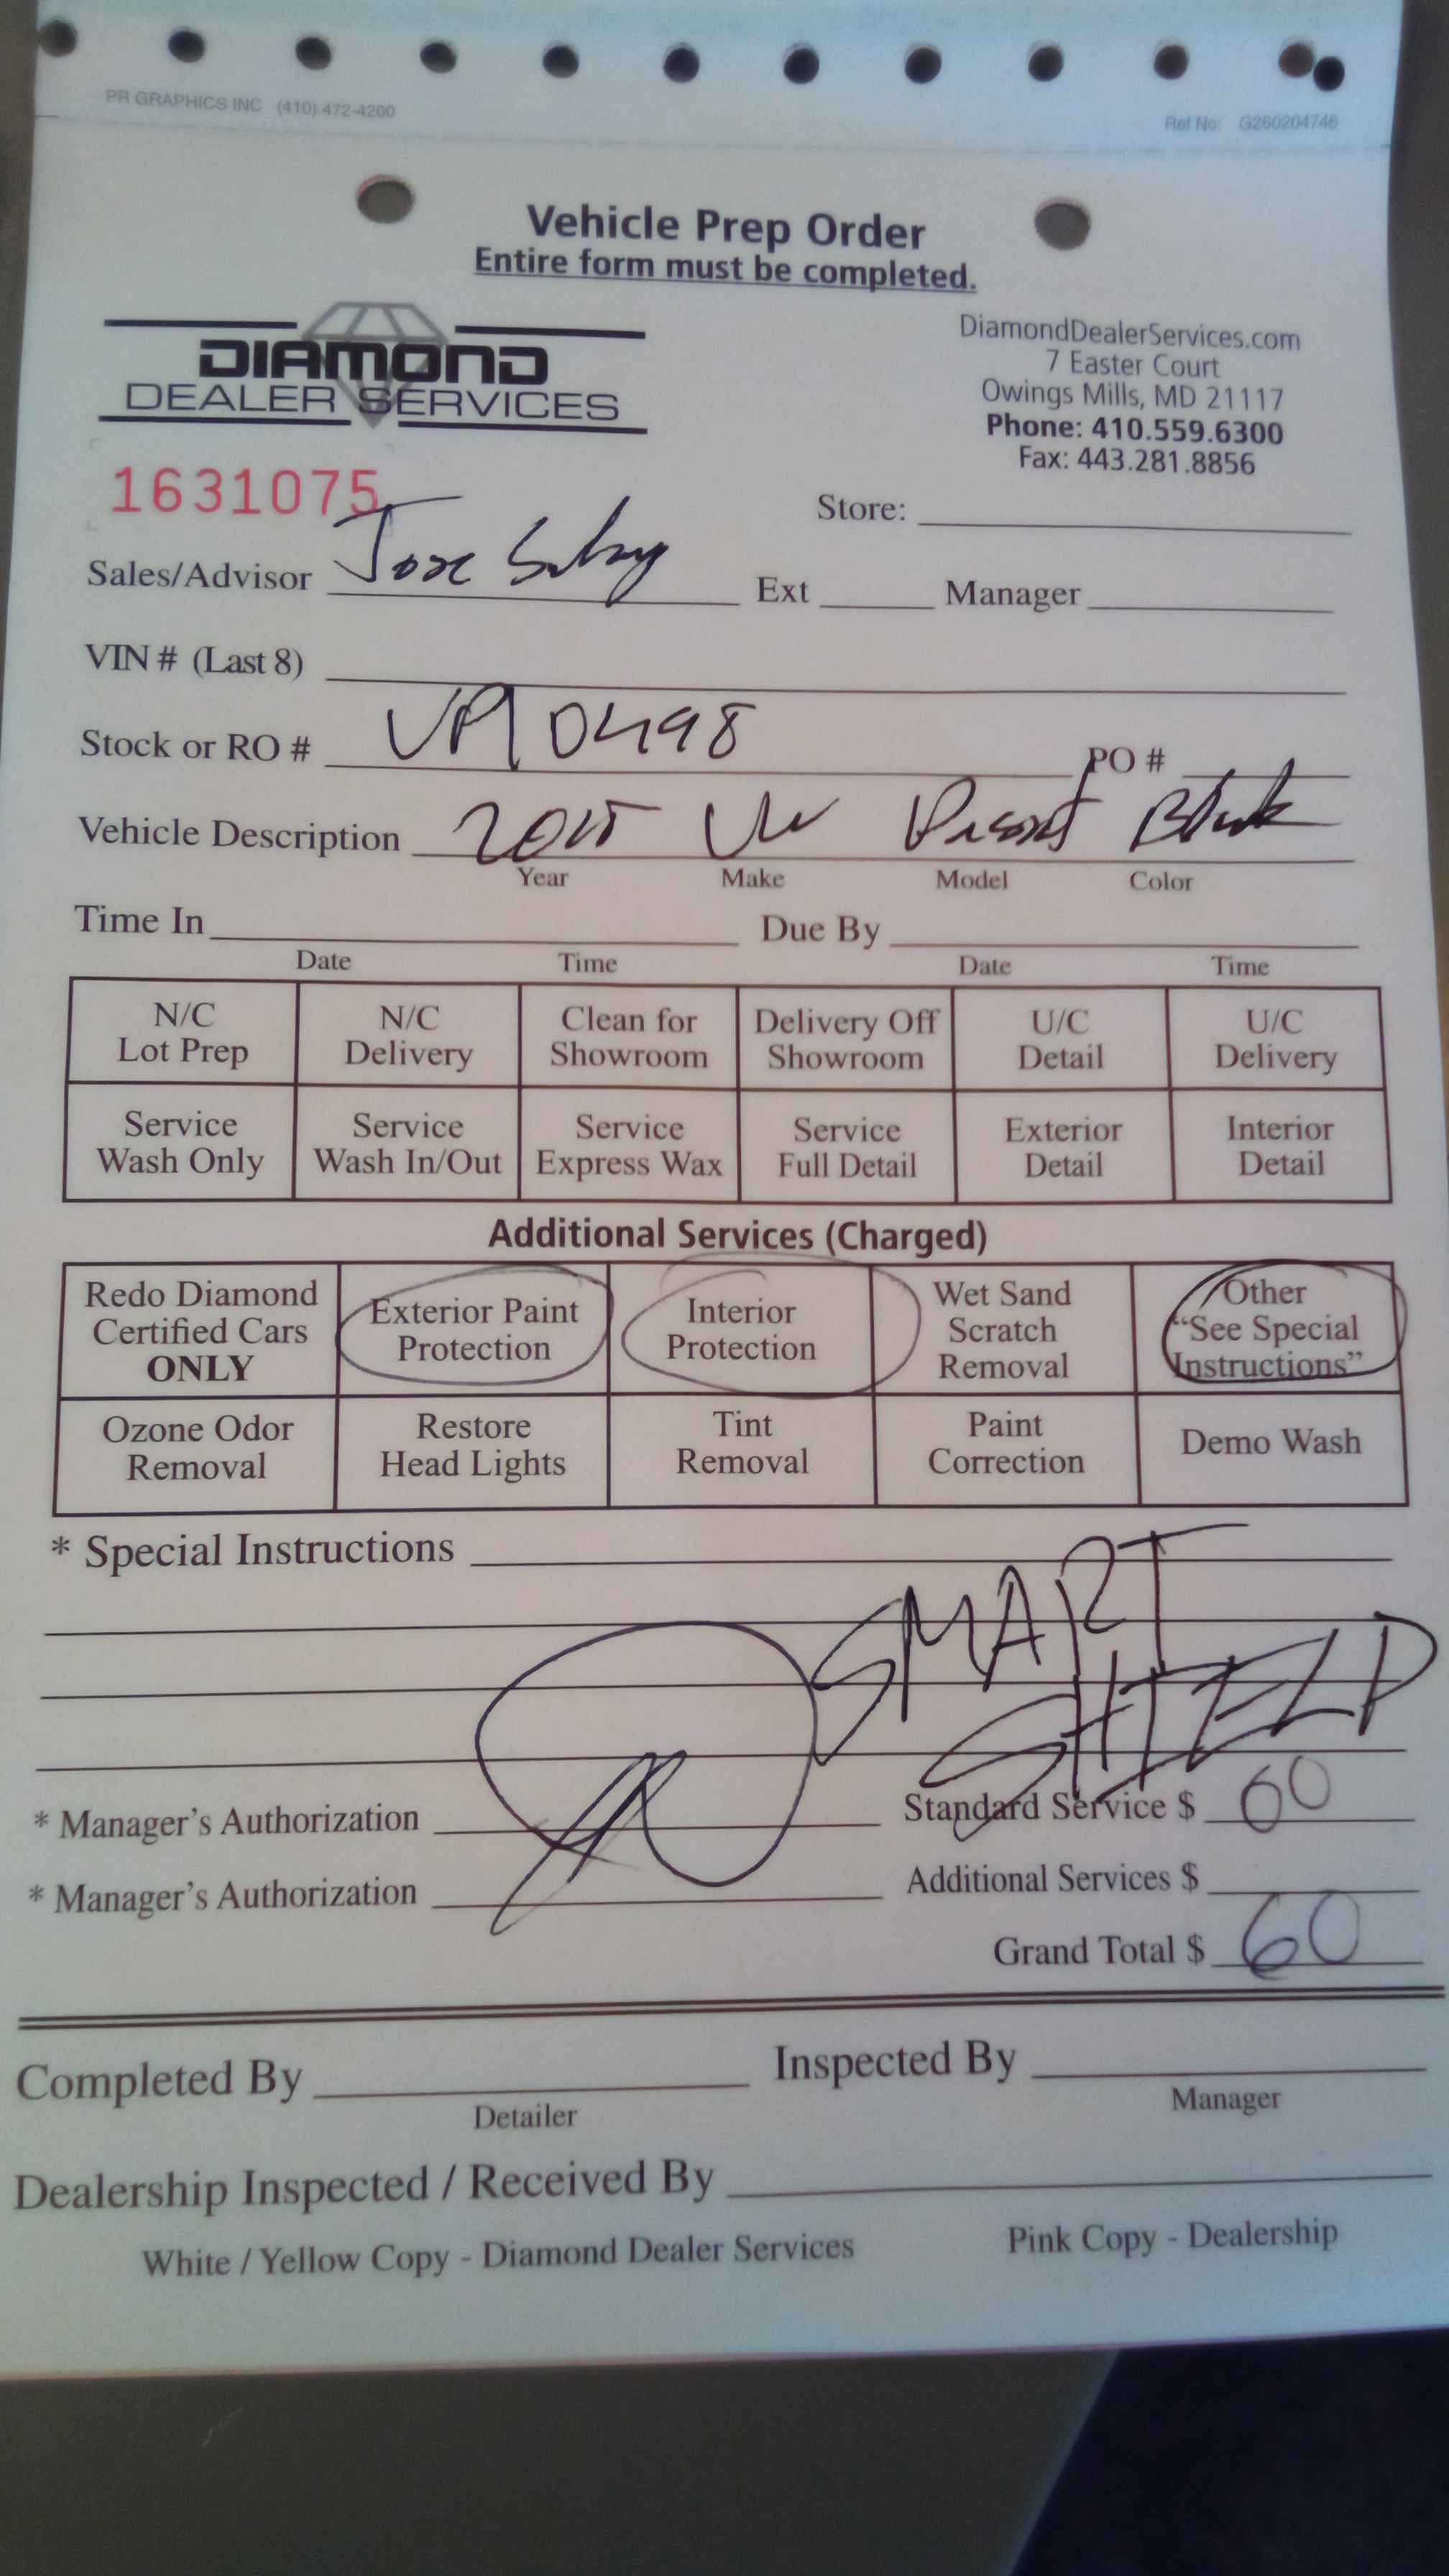 PR GRAPHICS INC (410) 472-4200 Ref No: G260204746
Vehicle Prep Order
Entire form must be completed.
DIAMOND
DEALER SERVICES
DiamondDealerServices.com
7 Easter Court
Owings Mills, MD 21117
Phone: 410.559.6300
Fax: 443.281.8856
1631075
Store:
Sales/Advisor Jose Ext Manager
VIN # (Last 8)
Stock or RO # VP10498 PO #
Vehicle Description 2015 VW Passat Black
Year Make Model Color
Time In Due By
Date Time Date Time
N/C Lot Prep
N/C Delivery
Clean for Showroom
Delivery Off Showroom
U/C Detail
U/C Delivery
Service Wash Only
Service Wash In/Out
Service Express Wax
Service Full Detail
Exterior Detail
Interior Detail
Additional Services (Charged)
Redo Diamond Certified Cars ONLY
Exterior Paint Protection
Interior Protection
Wet Sand Scratch Removal
Other "See Special Instructions"
Ozone Odor Removal
Restore Head Lights
Tint Removal
Paint Correction
Demo Wash
* Special Instructions
SMART
SHIELD
* Manager's Authorization Standard Service $ 60
* Manager's Authorization Additional Services $
Grand Total $ 60
Completed By Inspected By
Detailer Manager
Dealership Inspected / Received By
White / Yellow Copy - Diamond Dealer Services Pink Copy - Dealership